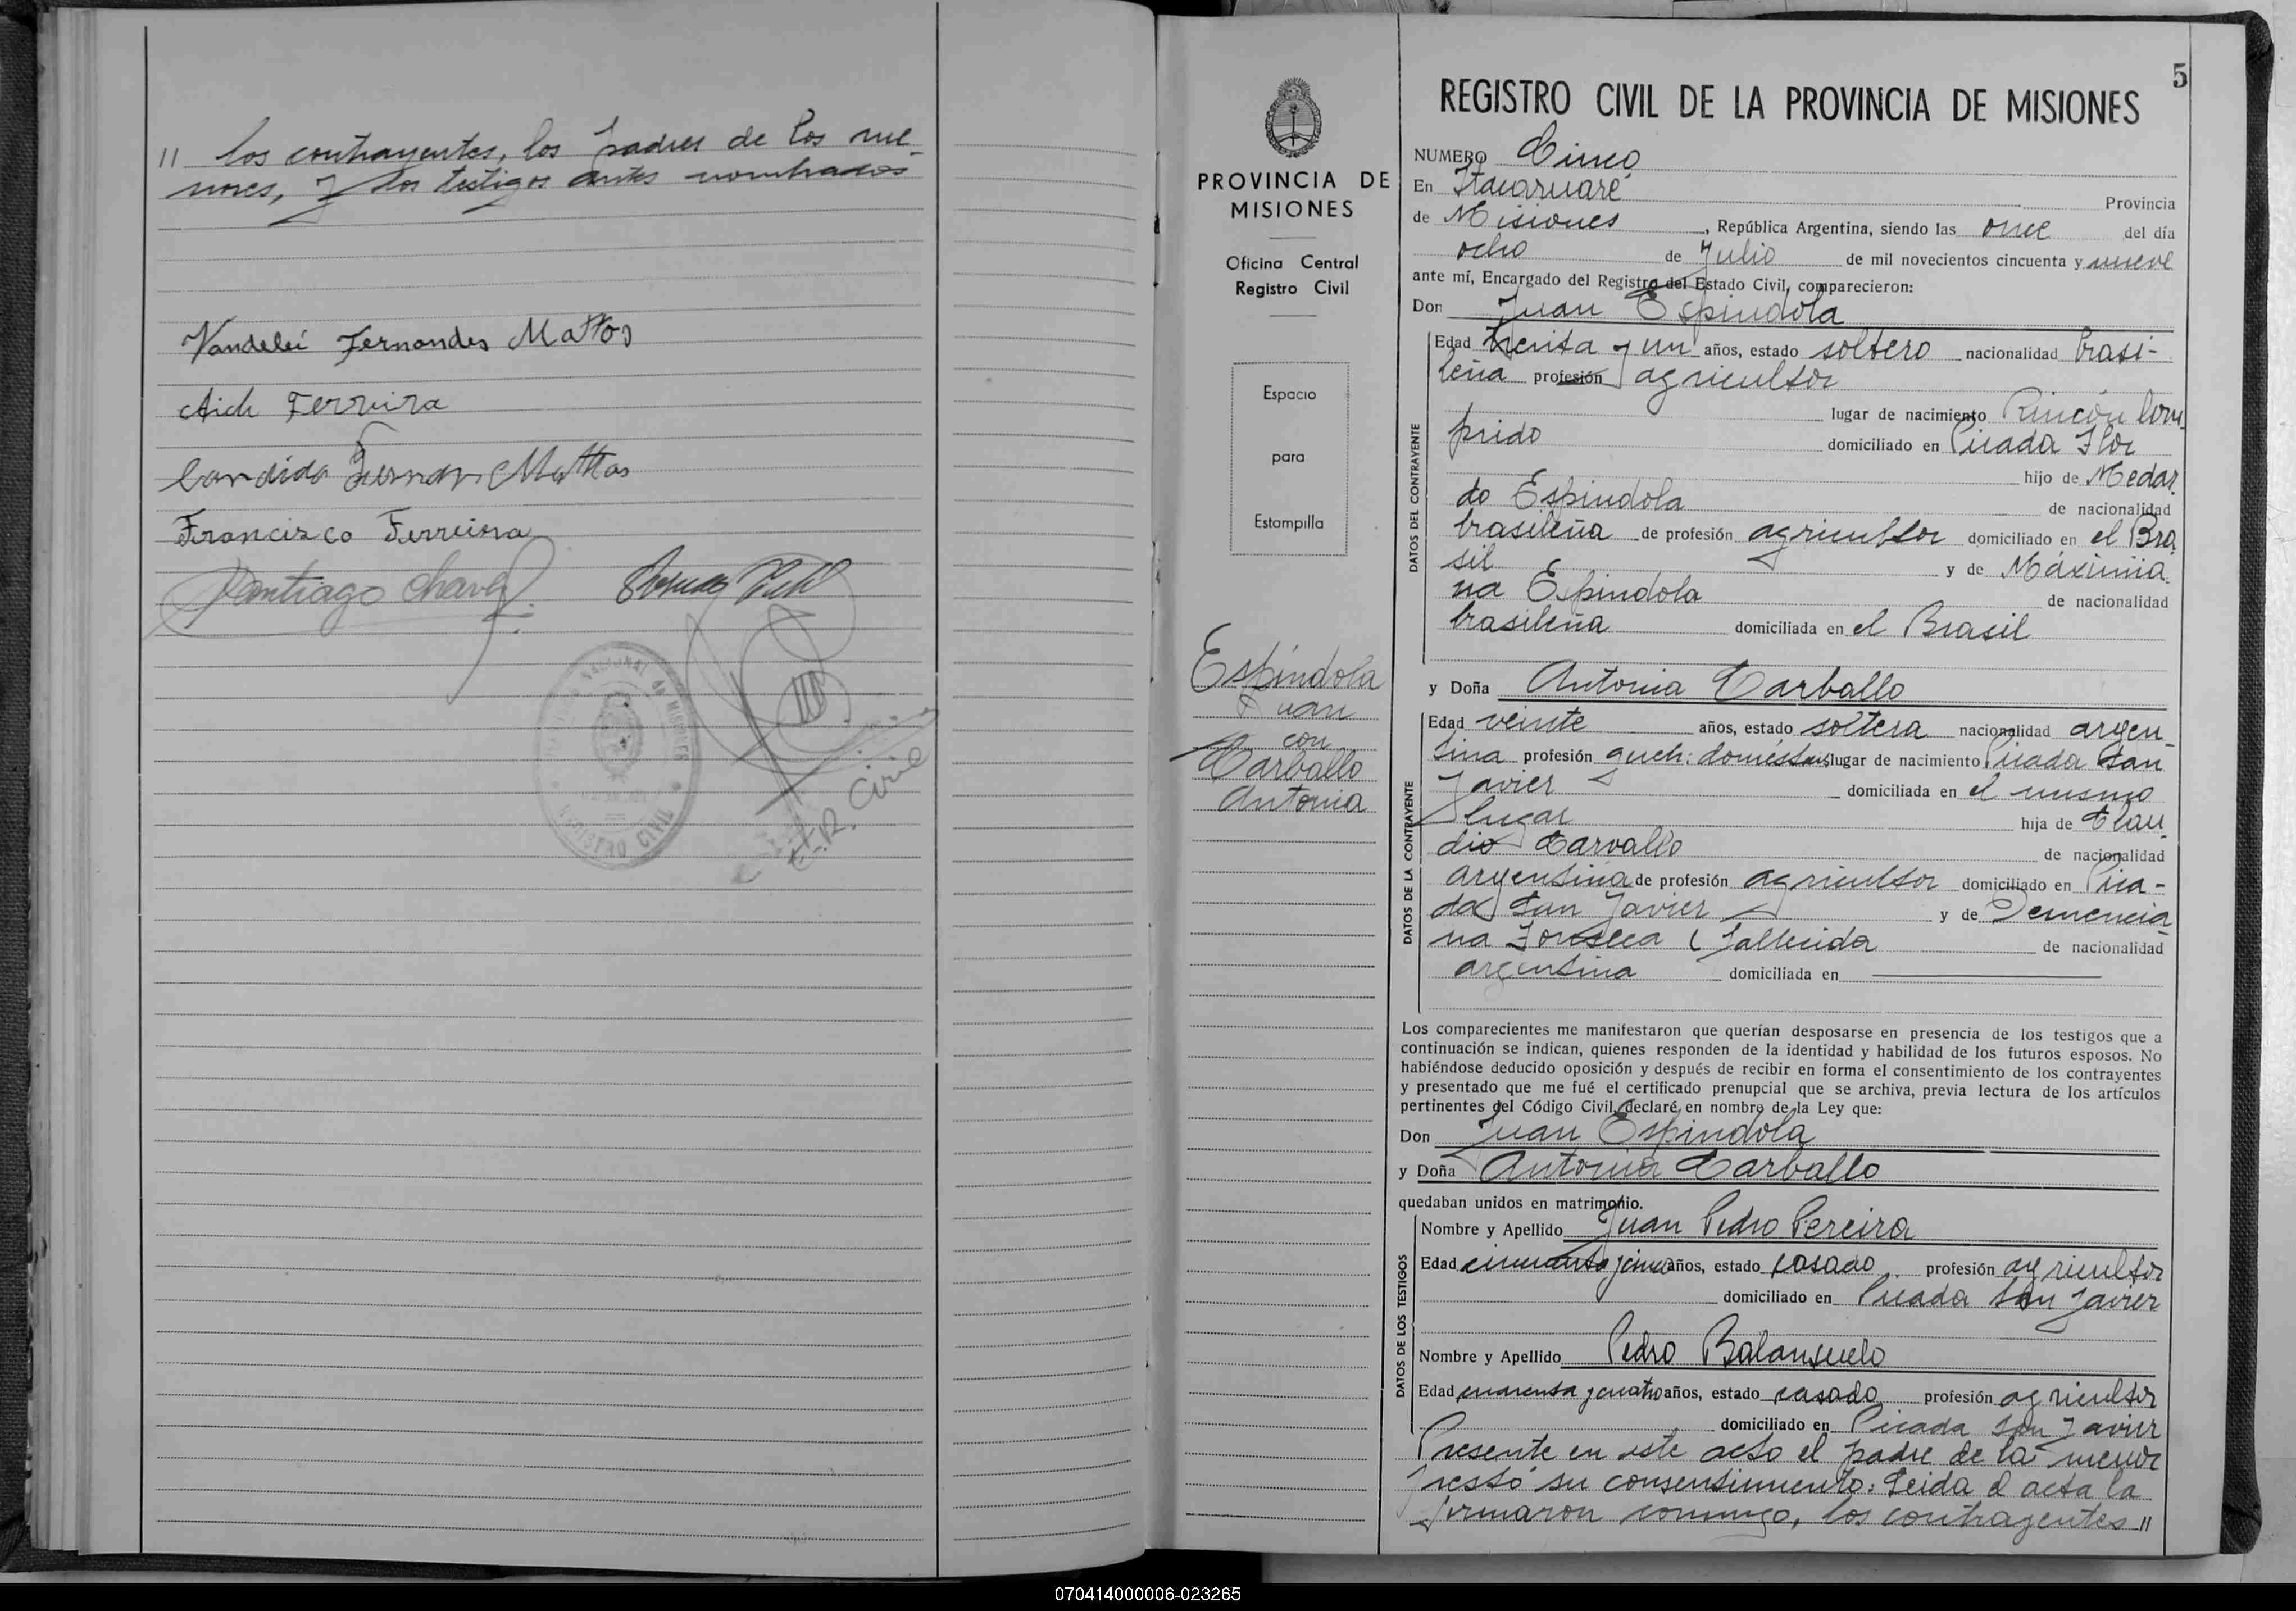 " los contrayentes, los padres de los me-
nores, y los testigos antes nombrados
Vandelei Fernandes Mattos
Ferreira
Candido Mattos
Francisco Ferreira
Santiago Chavez
REGISTRO CIVIL
E. R. Civil
PROVINCIA DE
MISIONES
Oficina Central
Registro Civil
Espacio
para
Estampilla
Espíndola
Juan
con
Carballo
Antonia
5
REGISTRO CIVIL DE LA PROVINCIA DE MISIONES
NUMERO Cinco
En Itacaruaré Provincia
de Misiones, República Argentina, siendo las once del día
ocho de Julio de mil novecientos cincuenta y nueve
ante mí, Encargado del Registro del Estado Civil, comparecieron:
Don Juan Espindola
DATOS DEL CONTRAYENTE
Edad treinta y un años, estado soltero nacionalidad brasi-
leña profesión agricultor
lugar de nacimiento Rincón Com
prido domiciliado en Picada Flor
hijo de Medar
do Espindola de nacionalidad
brasileña de profesión agricultor domiciliado en el Bra
sil y de Máximia
na Espindola de nacionalidad
brasileña domiciliada en el Brasil
y Doña Antonia Carballo
DATOS DE LA CONTRAYENTE
Edad veinte años, estado soltera nacionalidad argen-
tina profesión queh: domésticos lugar de nacimiento Picada San
Javier domiciliada en el mismo
lugar hija de Clau
dio Carvallo de nacionalidad
argentina de profesión agricultor domiciliado en Pica-
da San Javier y de Demencia
na Fonseca (fallecida de nacionalidad
argentina domiciliada en
Los comparecientes me manifestaron que querían desposarse en presencia de los testigos que a
continuación se indican, quienes responden de la identidad y habilidad de los futuros esposos. No
habiéndose deducido oposición y después de recibir en forma el consentimiento de los contrayentes
y presentado que me fué el certificado prenupcial que se archiva, previa lectura de los artículos
pertinentes del Código Civil, declaré, en nombre de la Ley que:
Don Juan Espindola
y Doña Antonia Carballo
quedaban unidos en matrimonio.
DATOS DE LOS TESTIGOS
Nombre y Apellido Juan Pedro Pereira
Edad cincuenta y cinco años, estado casado profesión agricultor
domiciliado en Picada San Javier
Nombre y Apellido Pedro Balansuelo
Edad cuarenta y cuatro años, estado casado profesión agricultor
domiciliado en Picada San Javier
Presente en este acto el padre de la menor
prestó su consentimiento: Leida el acta la
firmaron conmigo, los contrayentes "
070414000006-023265